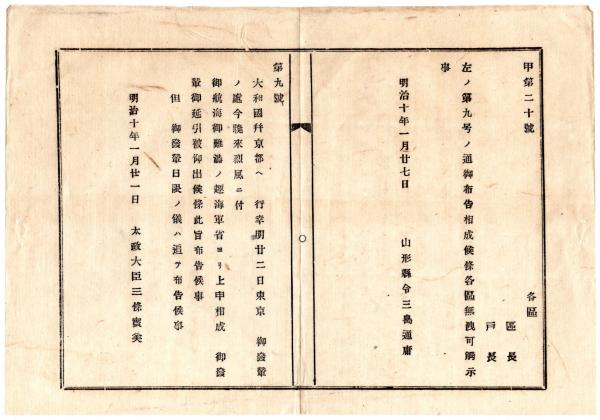 甲第二十號
各區
區長
戸長
左ノ第九号ノ通御布告相成候條各區無洩可觸示
事
明治十年一月廿七日
山形縣令三島通庸
第九號
大和國幷京都ヘ 行幸明廿二日東京 御發輦
ノ處今曉來烈風ニ付
御航海御難澁ノ趣海軍省ヨリ上申相成 御發
輦御延引被仰出候條此旨布告候事
但 御發輦日限ノ儀ハ追テ布告候事
明治十年一月廿一日
太政大臣三條實美